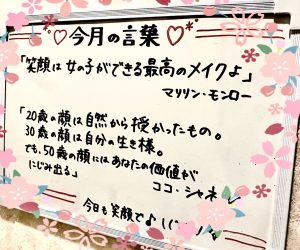 ♡今月の言葉♡
「笑顔は女の子ができる最高のメイクよ」
マリリン・モンロー
「20歳の顔は自然から授かったもの。
30歳の顔は自分の生き様。
でも、50歳の顔にはあなたの価値が
にじみ出る」
ココ・シャネル
今日も笑顔で♪